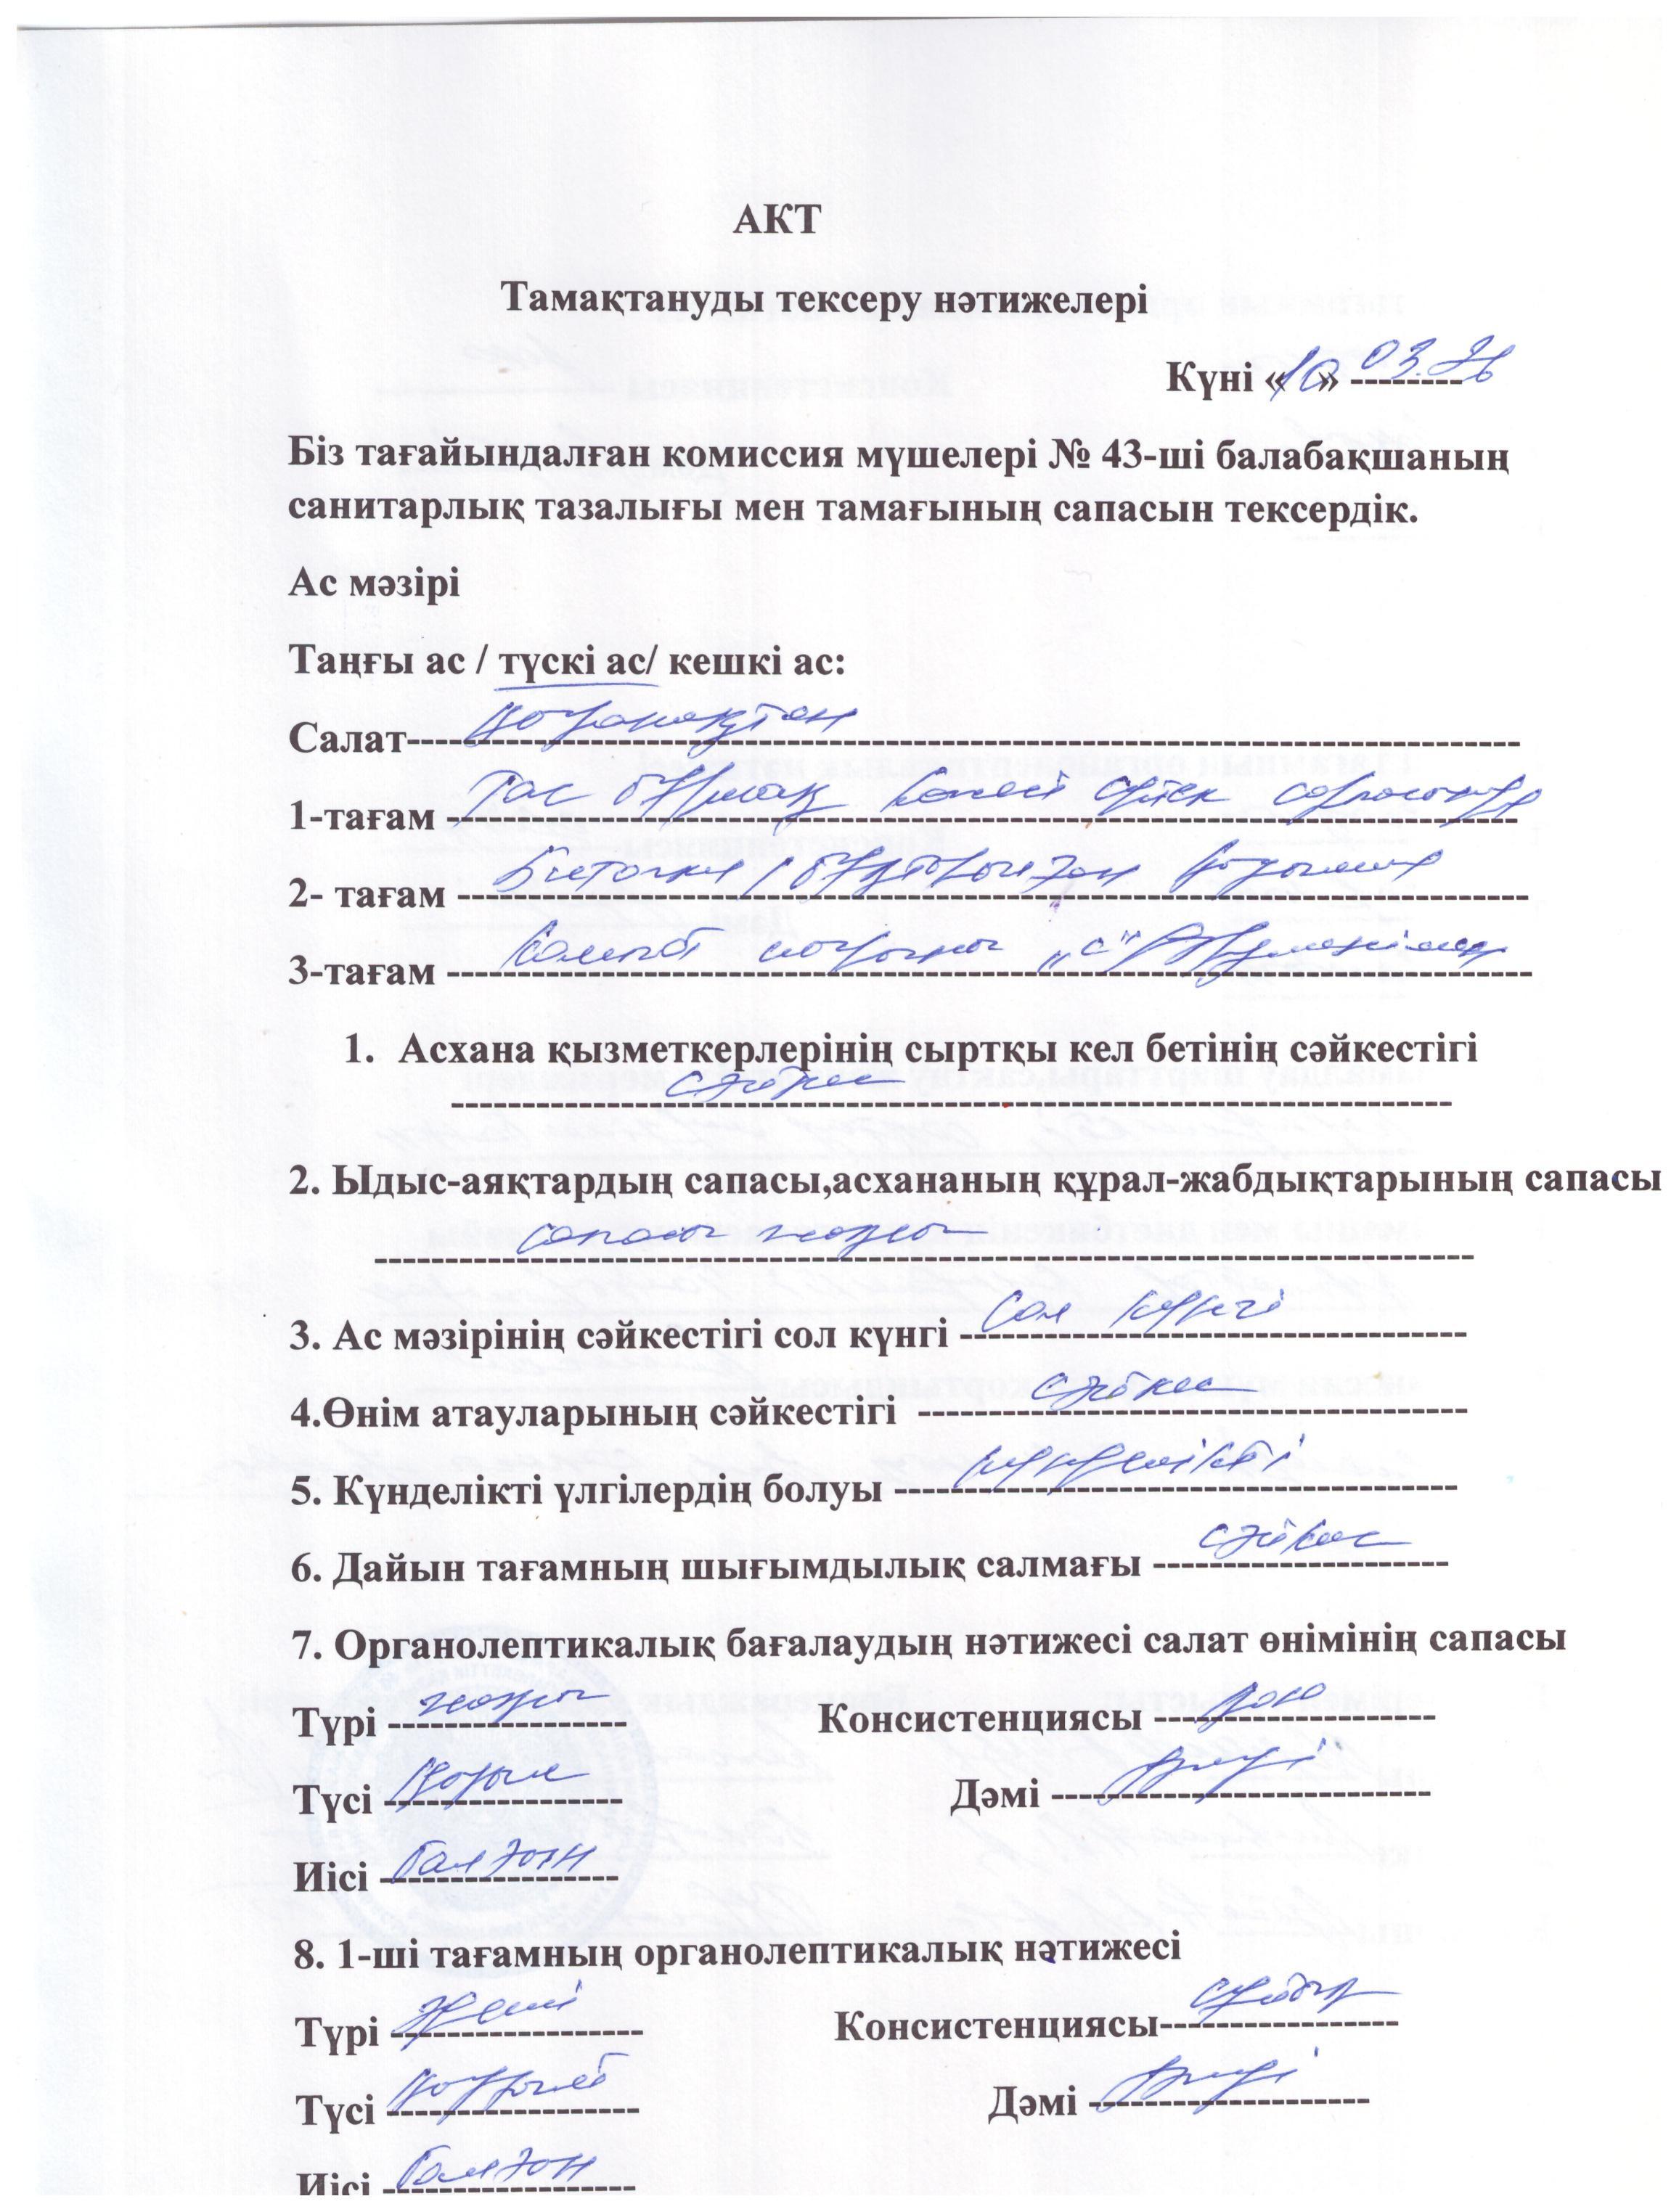 АКТ
Тамақтануды тексеру нәтижелері
Күні «10» -------- 03.26
Біз тағайындалған комиссия мүшелері № 43-ші балабақшаның
санитарлық тазалығы мен тамағының сапасын тексердік.
Ас мәзірі
Таңғы ас / түскі ас/ кешкі ас:
Салат
1-тағам Тас бұршақ көжесі сүйек сорпасында
2- тағам Биточки
3-тағам Компот "С"
1. Асхана қызметкерлерінің сыртқы кел бетінің сәйкестігі
сәйкес
2. Ыдыс-аяқтардың сапасы,асхананың құрал-жабдықтарының сапасы
сапасы жақсы
3. Ас мәзірінің сәйкестігі сол күнгі сол күнгі
4.Өнім атауларының сәйкестігі сәйкес
5. Күнделікті үлгілердің болуы күнделікті
6. Дайын тағамның шығымдылық салмағы сәйкес
7. Органолептикалық бағалаудың нәтижесі салат өнімінің сапасы
Түрі жақсы Консистенциясы
Түсі Дәмі
Иісі балғын
8. 1-ші тағамның органолептикалық нәтижесі
Түрі Консистенциясы сұйық
Түсі Дәмі
Иісі балғын